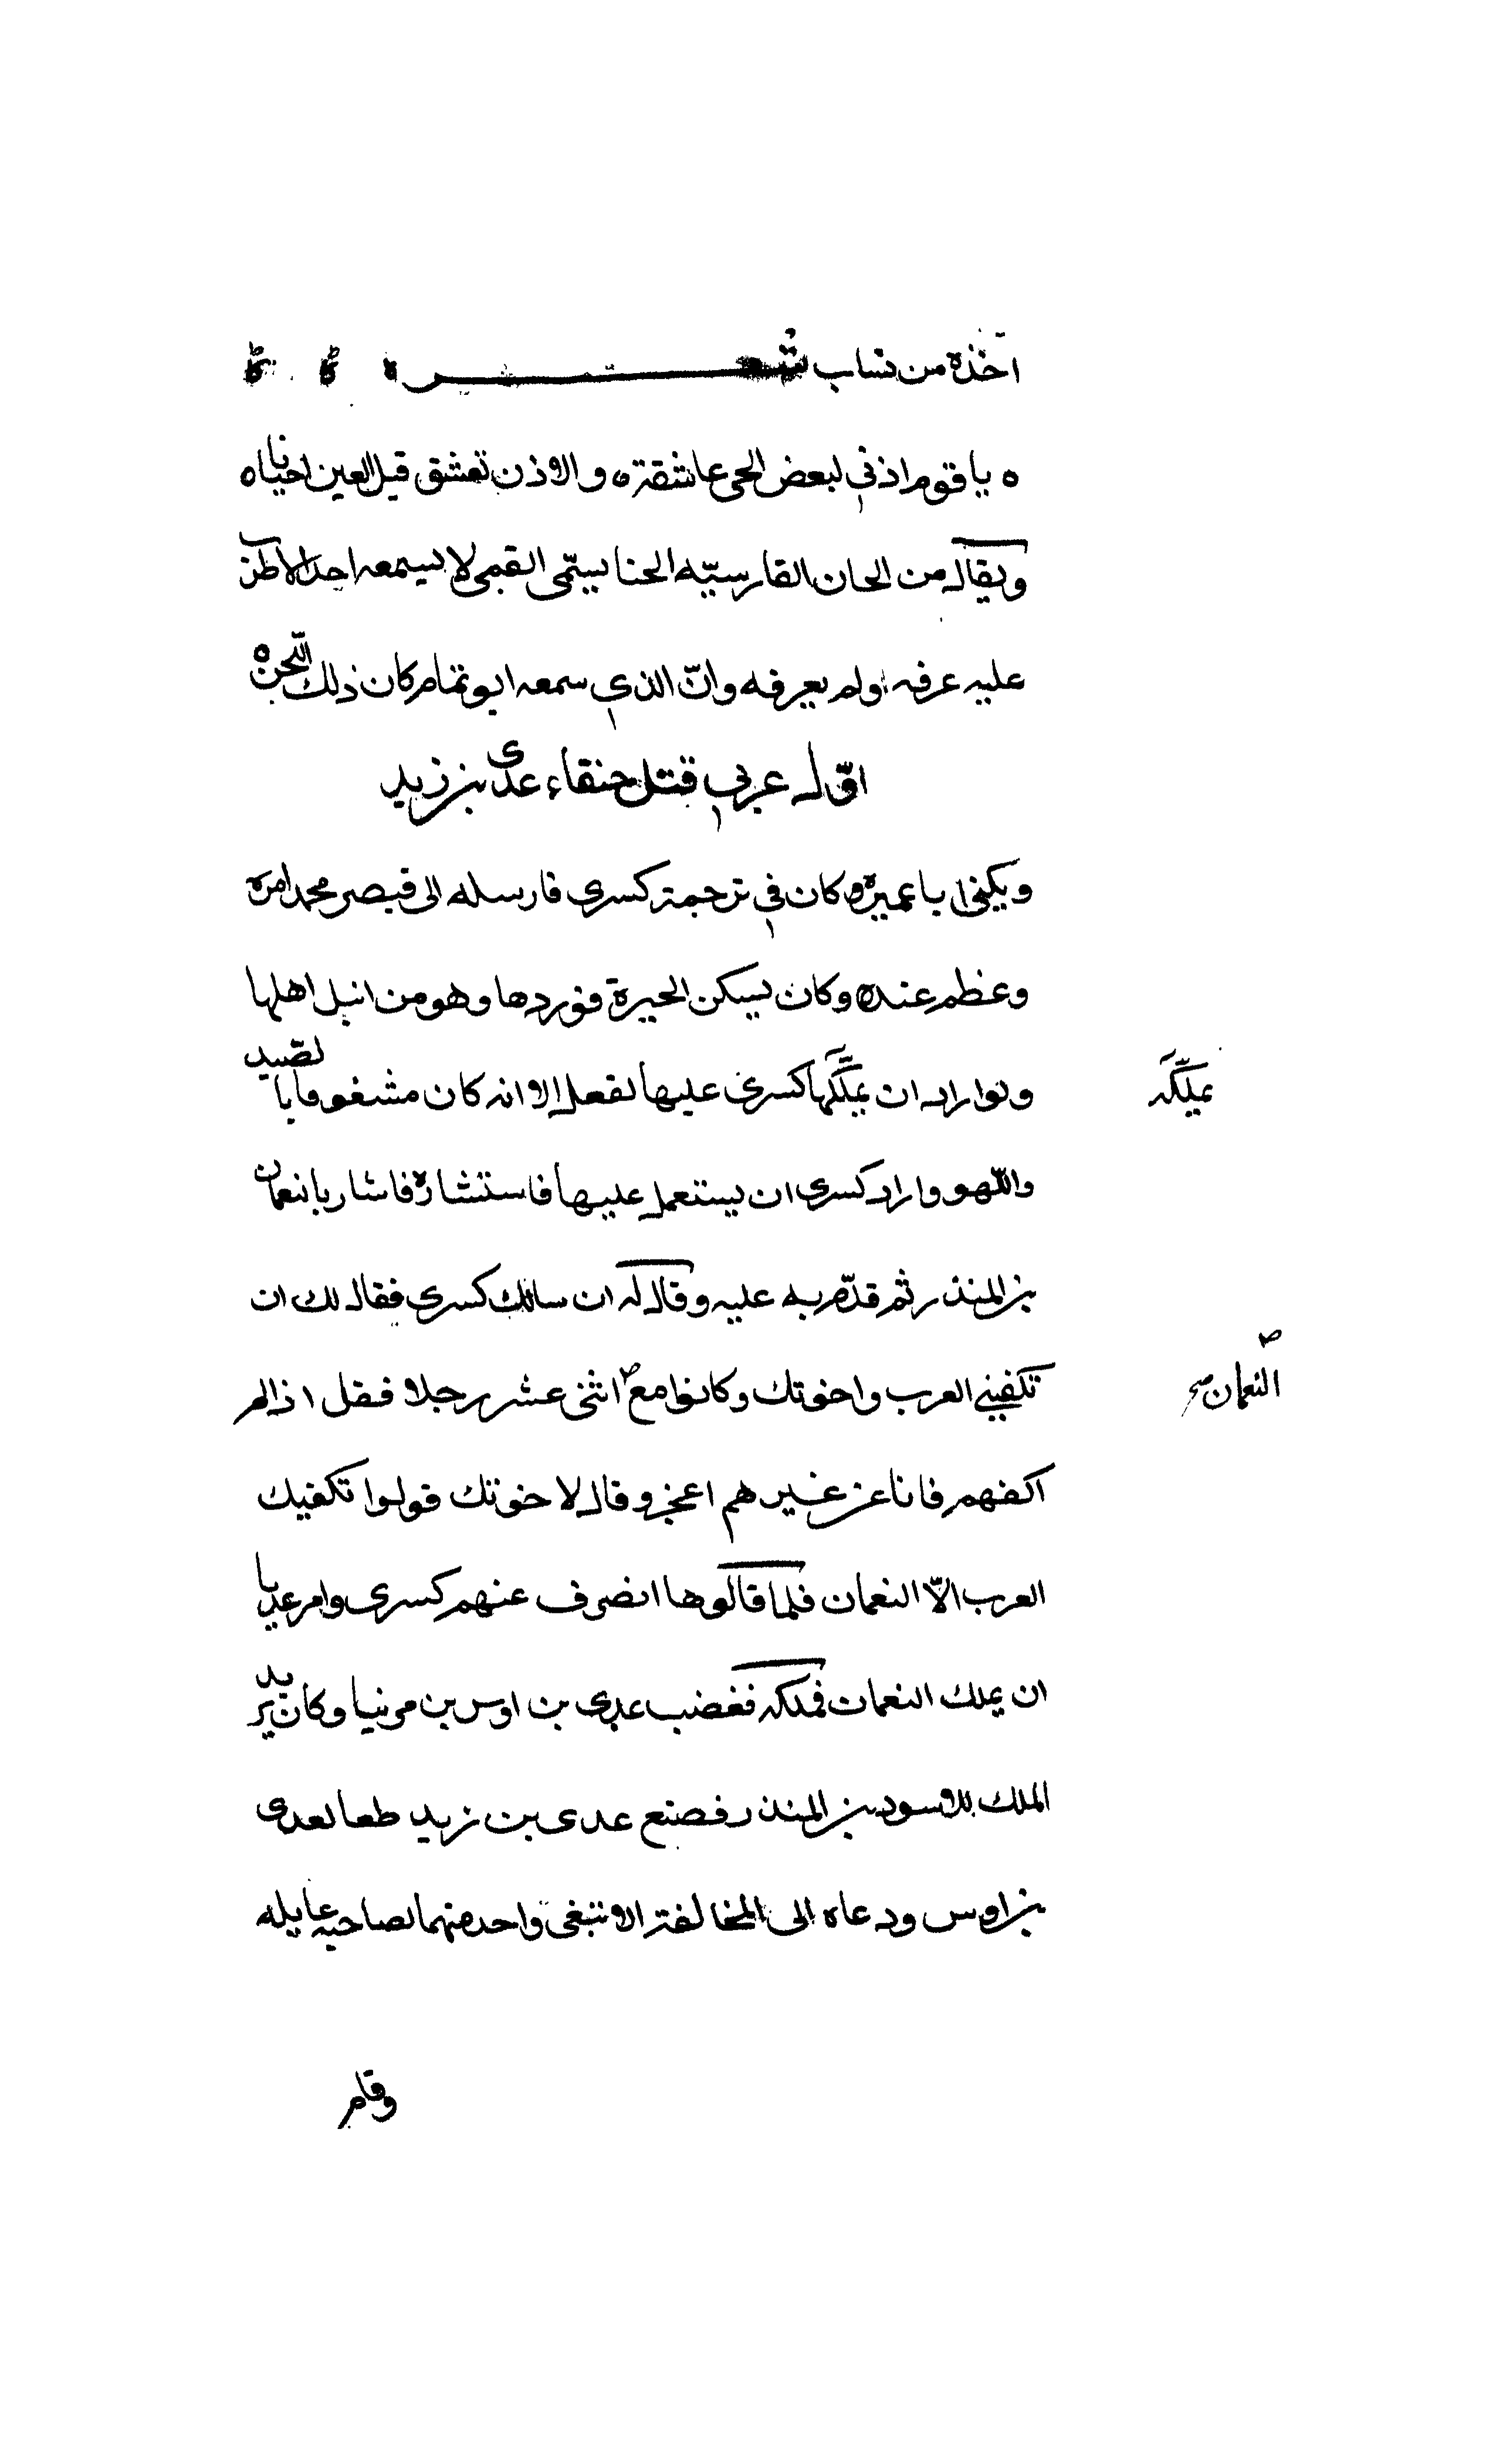 اخذه من نساب شعـــــــر ه
ه ياقوم اذني لبعض الحي عاشقة ه والاذن تعشق قبل العين احيانا ه
ويقال من الحان الفارسيّه الحنا يسمّى القمى لا يسمعه احد الا طرب
عليه عرفه اولم يعرفه وانّ الذي سمعه ابوتمام كان ذلك اللّحن ه
اوّل عربي قتل خنقاء عدى بن زيد
ويكنى ابا عميره وكان في ترجمة كسرى فارسله الى قيصر محمد امره
وعظم عنده وكان يسكن الحيرة فوردها وهو من انبل اهلها
ولو اراد ان يملّكها كسرى عليها لفعل الا انه كان مشغوفا بالصّيد
يملّكه
واللّهو واراد كسرى ان يستعمل عليها فاستشاره فاشار بالنعمان
بن المنذر ثم قدّم به عليه وقال له ان سالك كسرى فقال لك ان
تكفيني العرب واخوتك وكانوا مع اثنى عشر رجلا فقل اذا لم
النعمان صح
اكفهم فانا عن غيرهم اعجز وقال لاخوتك قولوا تكفيك
العرب الاّ النعمان فلما قالوها انصرف عنهم كسرى وامر عديا
ان يملك النعمان فملكه فغضب عدى بن اوس بن مرنيا وكان يريد
الملك للاسود بن المنذر فصنع عدى بن زيد طعا لعدى
بن اوس ودعاه الى المخالفة الا تبغى واحد منهما لصاحبه غايله
وقام